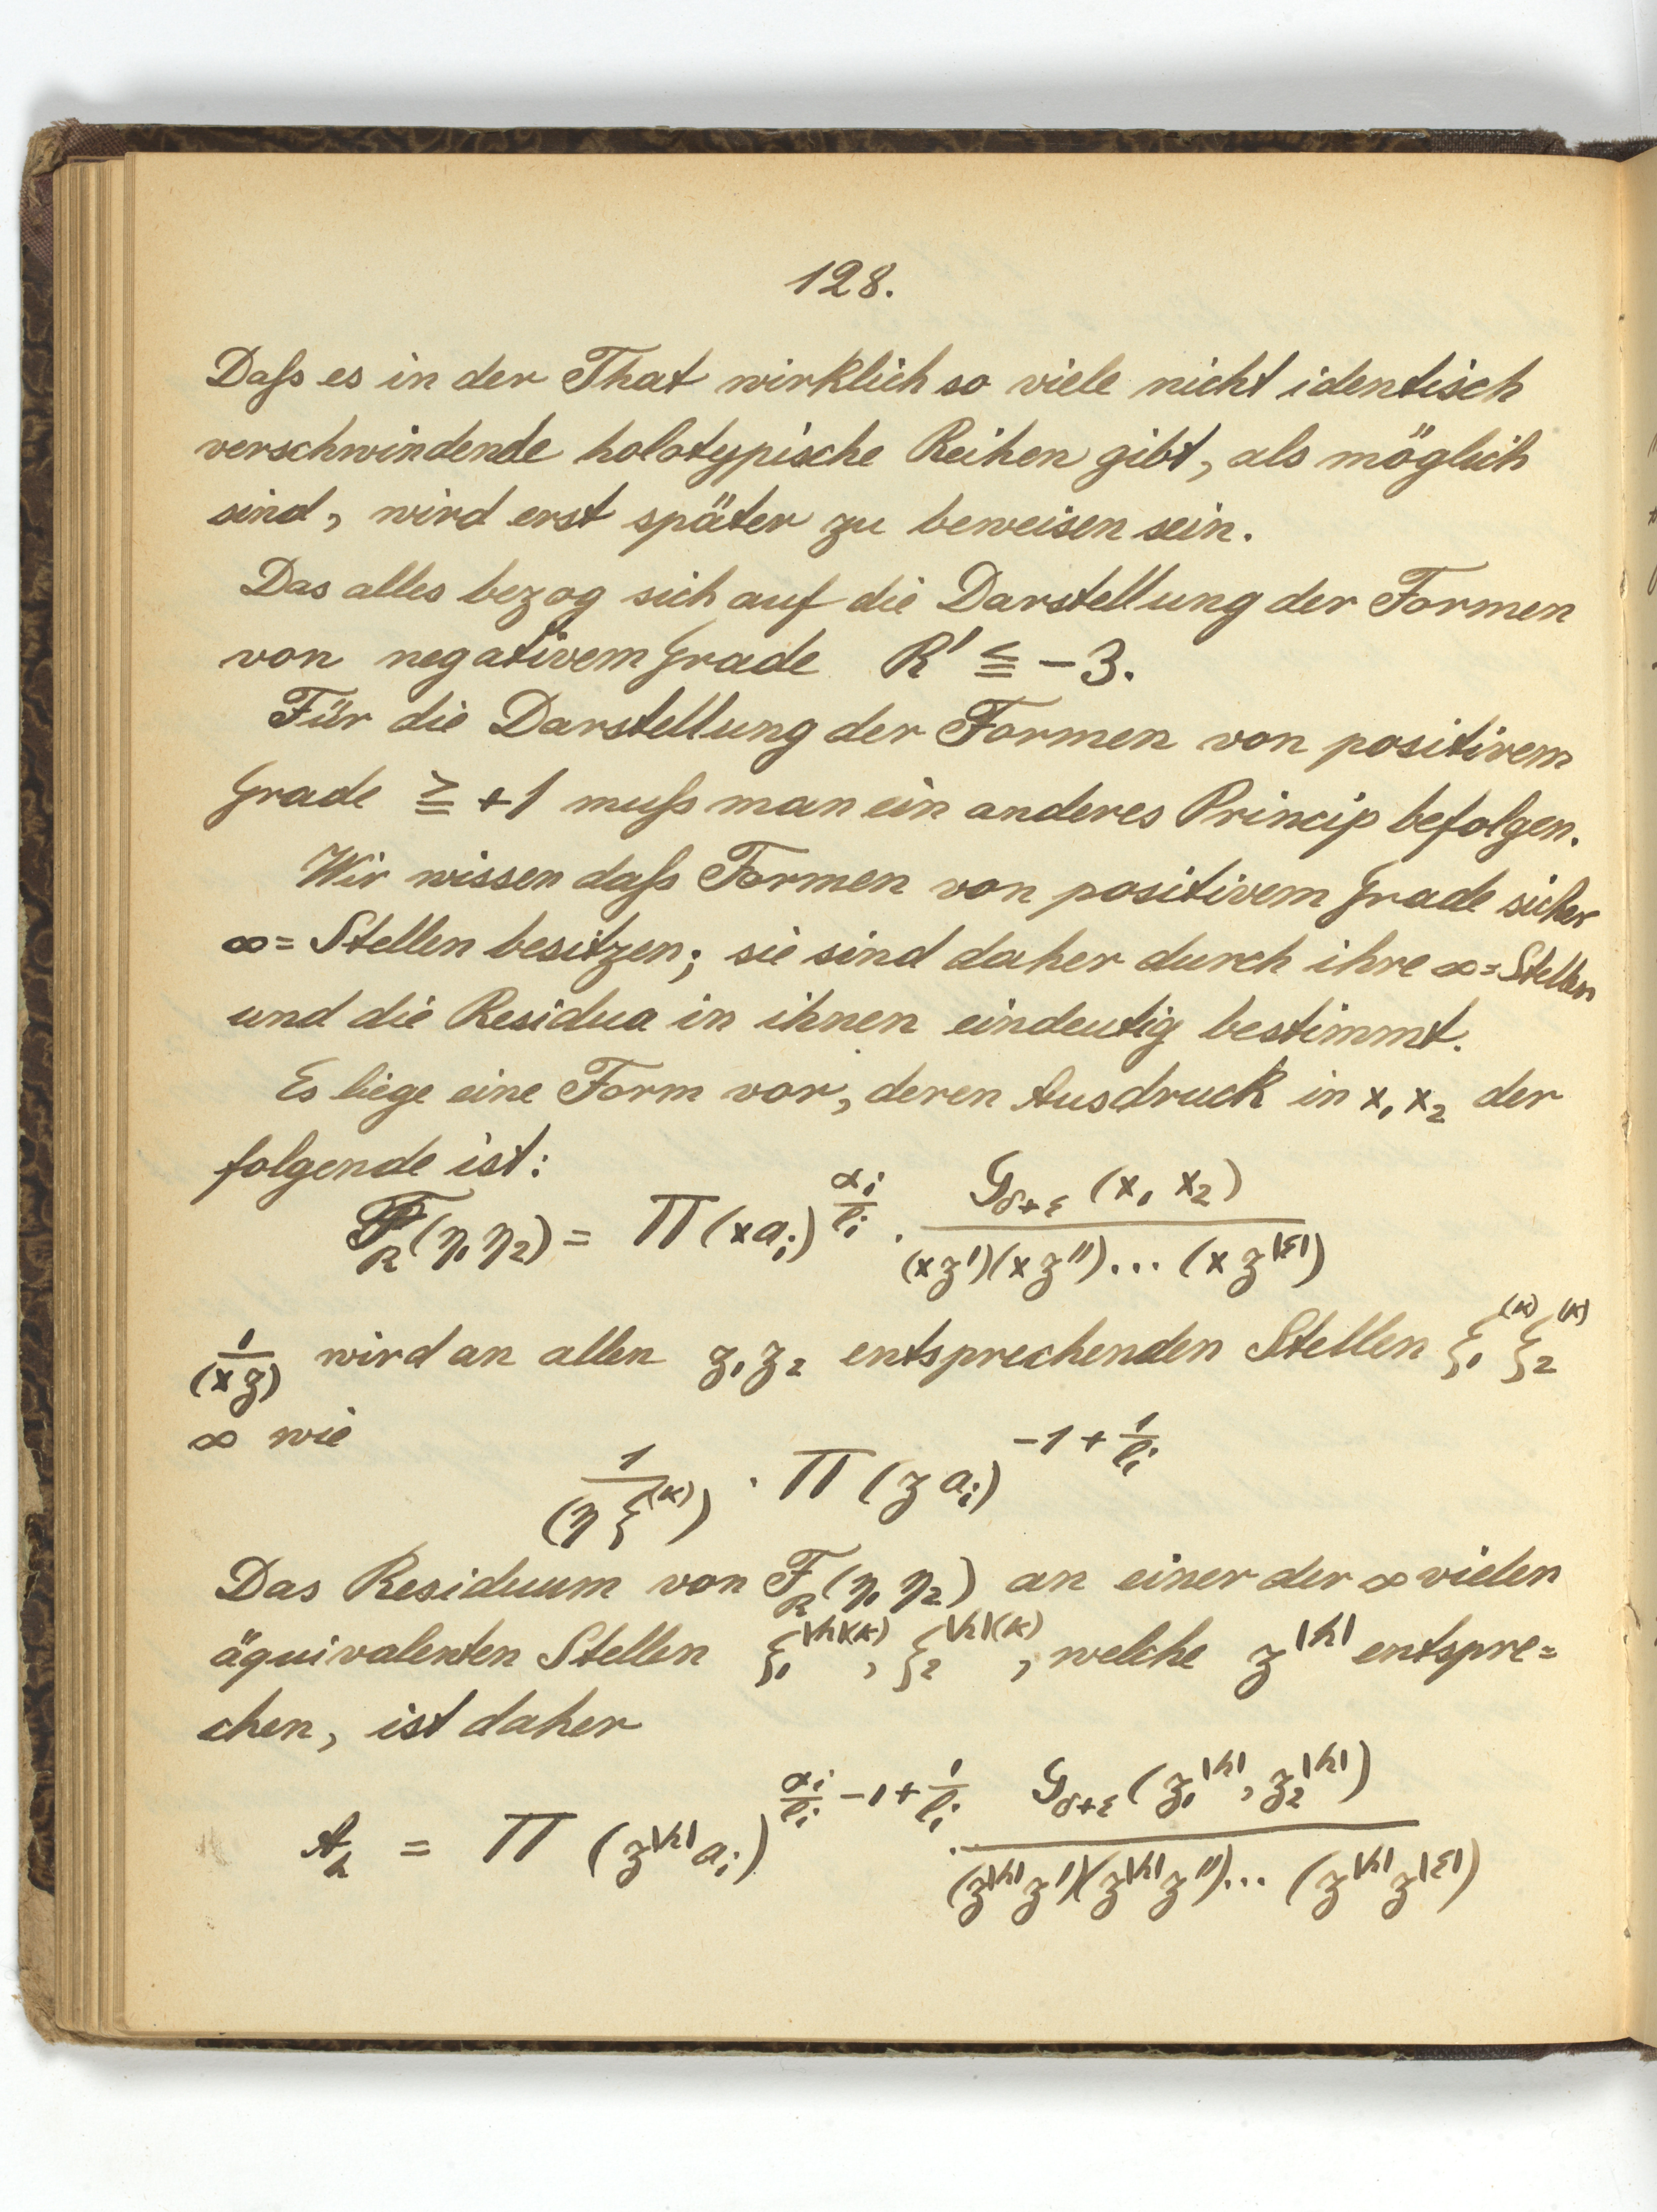 128.
Daſs es in der That wirklich so viele nicht identisch
verschwindende holotypische Reihen gibt, als möglich
sind, wird erst später zu beweisen sein.
Das alles bezog sich auf die Darstellung der Formen
von negativem Grade R' ≦ −3.
Für die Darstellung der Formen von positivem
Grade ≧ +1 muſs man ein anderes Princip befolgen.
Wir wissen daſs Formen von positivem Grade sicher
∞=Stellen besitzen; sie sind daher durch ihre ∞=Stellen
und die Residua in ihnen eindeutig bestimmt.
Es liege eine Form vor, deren Ausdruck in x₁ x₂ der
folgende ist:
F_R(η₁ η₂) = Π(x a_i)^{α_i/l_i} · G_{δ+ε}(x₁ x₂) / (xz')(xz'')...(xz^{|ε|})
1/(xz) wird an allen z₁ z₂ entsprechenden Stellen ξ₁^{(κ)} ξ₂^{(κ)}
∞ wie
1/(η ξ^{(κ)}) · Π(z a_i)^{−1+1/l_i}
Das Residuum von F_R(η₁ η₂) an einer der ∞ vielen
äquivalenten Stellen ξ₁^{|h|(κ)}, ξ₂^{|h|(κ)}, welche z^{|h|} entspre=
chen, ist daher
A_h = Π(z^{|h|} a_i)^{α_i/l_i −1+1/l_i} · G_{δ+ε}(z₁^{|h|}, z₂^{|h|}) / (z^{|h|}z')(z^{|h|}z'')...(z^{|h|}z^{|ε|})